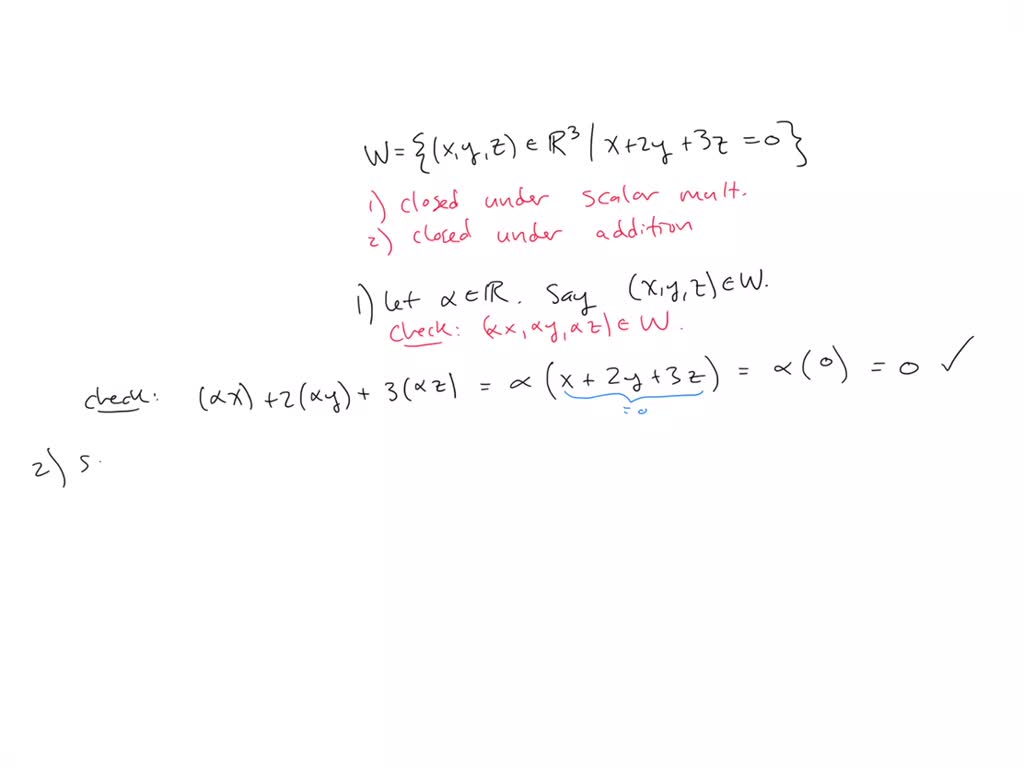 W = {(x,y,z) ∈ ℝ³ | x+2y+3z = 0}
1) closed under scalar mult.
2) closed under addition
1) let α ∈ ℝ. Say (x,y,z) ∈ W.
check: (αx, αy, αz) ∈ W.
check: (αx) + 2(αy) + 3(αz) = α(x + 2y + 3z) = α(0) = 0 ✓
= 0
2) S